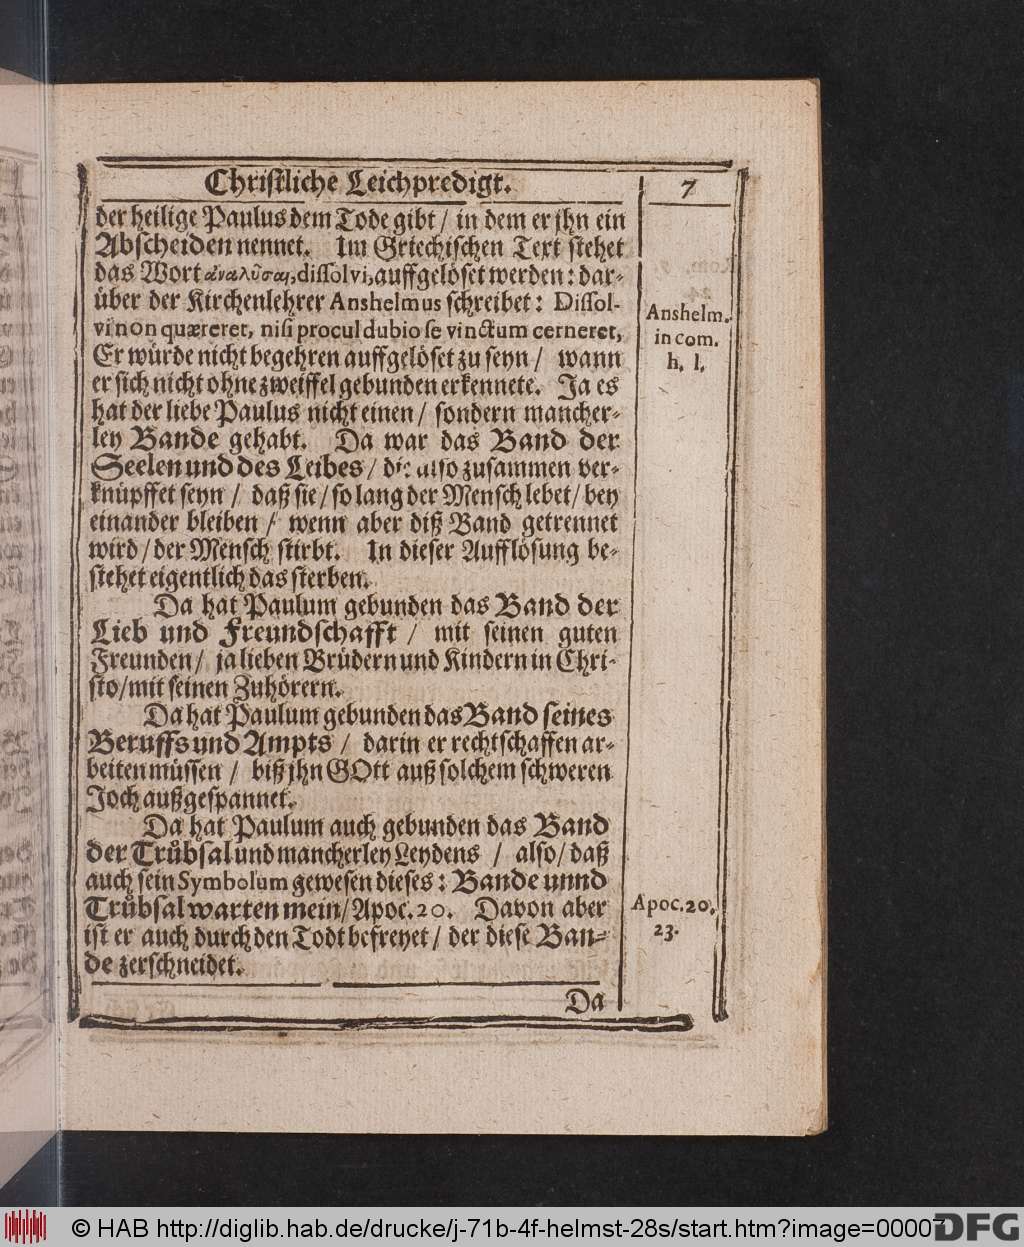 Christliche Leichpredigt.
7
der heilige Paulus dem Tode gibt / in dem er jhn ein
Abscheiden nennet. Im Griechischen Text stehet
das Wort ἀναλῦσαι, dissolvi, auffgelöset werden: dar-
über der Kirchenlehrer Anshelmus schreibet: Dissol-
vi non quæreret, nisi procul dubio se vinctum cerneret,
Er würde nicht begehren auffgelöset zu seyn / wann
er sich nicht ohne zweiffel gebunden erkennete. Ja es
hat der liebe Paulus nicht einen / sondern mancher-
ley Bande gehabt. Da war das Band der
Seelen und des Leibes / die also zusammen ver-
knüpffet seyn / daß sie / so lang der Mensch lebet / bey
einander bleiben / wenn aber diß Band getrennet
wird / der Mensch stirbt. In dieser Aufflösung be-
stehet eigentlich das sterben.
Da hat Paulum gebunden das Band der
Lieb und Freundschafft / mit seinen guten
Freunden / ja lieben Brüdern und Kindern in Chri-
sto / mit seinen Zuhörern.
Da hat Paulum gebunden das Band seines
Beruffs und Ampts / darin er rechtschaffen ar-
beiten müssen / biß jhn GOtt auß solchem schweren
Joch außgespannet.
Da hat Paulum auch gebunden das Band
der Trübsal und mancherley Leydens / also / daß
auch sein Symbolum gewesen dieses: Bande unnd
Trübsal warten mein / Apoc. 20. Davon aber
ist er auch durch den Todt befreyet / der diese Ban-
de zerschneidet.
Da
Anshelm.
in com.
h. l.
Apoc. 20.
23.
© HAB http://diglib.hab.de/drucke/j-71b-4f-helmst-28s/start.htm?image=00007
DFG